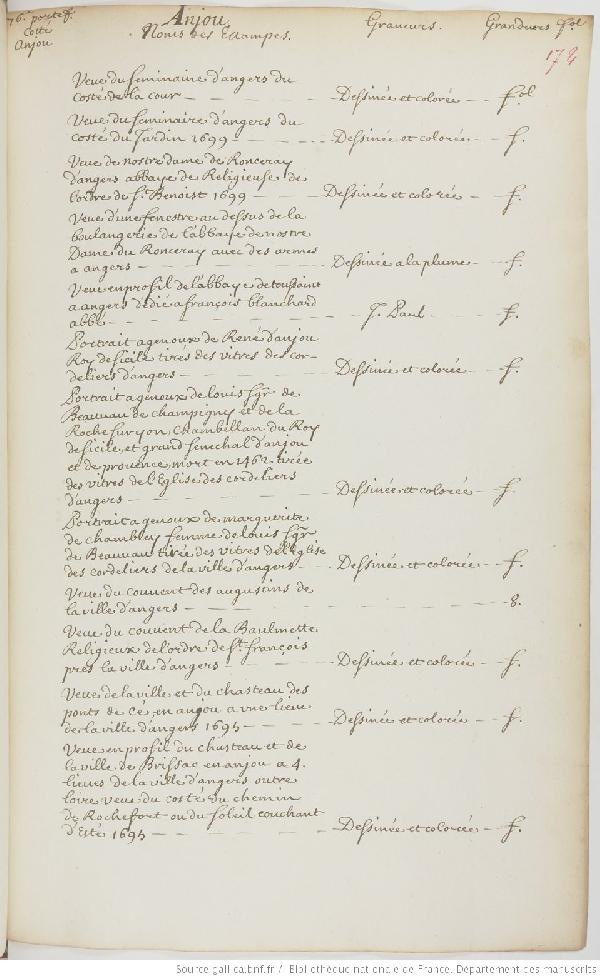 76. portef.
Costé
Anjou
Anjou
Noms des Estampes. Graveurs. Grandeurs fol
174
Veue du seminaire d'angers du
costé de la cour — Dessinée et colorée — fol
Veue du seminaire d'angers du
costé du Jardin 1699 — Dessinée et colorée — f.
Veue de nostre dame de Ronceray
d'angers abbaye de Religieuse de
l'ordre de St. Benoist 1699 — Dessinée et colorée — f.
Veue d'une fenestre au dessus de la
boulangerie de l'abbaye de nostre
Dame du Ronceray avec des armes
a angers — Dessinée a la plume — f.
Veue en profil de l'abbaye de toussaint
a angers dedié a françois blanchard
abbé — J. Paul — f.
Portrait agenoux de René d'anjou
Roy de sicile tirés des vitres des cor-
deliers d'angers — Dessinée et colorée — f.
Portrait agenoux de louis sgr. de
Beauvau de champigny et de la
Rochesuryon, Chambellan du Roy
de sicile, et grand senechal d'anjou
et de provence, mort en 1462. tirée
des vitres de l'Eglise des cordeliers
d'angers — Dessinée et colorée — f.
Portrait agenoux de marguerite
de chambley femme de louis sgr.
de Beauvau tirée des vitres de l'Eglise
des cordeliers de la ville d'angers — Dessinée et colorée — f.
Veue du couvent des augustins de
la ville d'angers — 8.
Veue du couvent de la Baulmette
Religieux de l'ordre de St. françois
pres la ville d'angers — Dessinée et colorée — f.
Veue de la ville et du chasteau des
ponts de cé, en anjou a une lieue
de la ville d'angers 1695 — Dessinée et colorée — f.
Veue en profil du chasteau et de
la ville de Brissac en anjou a 4.
lieues de la ville d'angers outre
loire, veue du costé du chemin
de Rochefort ou du soleil couchant
d'Esté 1695 — Dessinée et colorée — f.
Source gallica.bnf.fr / Bibliothèque nationale de France. Département des manuscrits